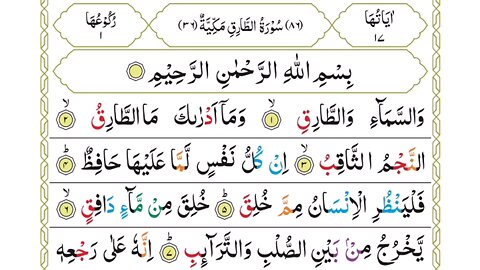 اٰيَاتُهَا ١٧ (٨٦) سُوْرَةُ الطَّارِقِ مَكِّيَّةٌ (٣٦) رُكُوْعُهَا ١
بِسْمِ اللّٰهِ الرَّحْمٰنِ الرَّحِيْمِ
وَالسَّمَآءِ وَالطَّارِقِ ۙ﴿١﴾ وَمَاۤ اَدْرٰىكَ مَا الطَّارِقُ ۙ﴿٢﴾
النَّجْمُ الثَّاقِبُ ۙ﴿٣﴾ اِنْ كُلُّ نَفْسٍ لَّمَّا عَلَيْهَا حَافِظٌ ؕ﴿٤﴾
فَلْيَنْظُرِ الْاِنْسَانُ مِمَّ خُلِقَ ؕ﴿٥﴾ خُلِقَ مِنْ مَّآءٍ دَافِقٍ ۙ﴿٦﴾
يَّخْرُجُ مِنْۢ بَيْنِ الصُّلْبِ وَالتَّرَآئِبِ ؕ﴿٧﴾ اِنَّهٗ عَلٰى رَجْعِهٖ